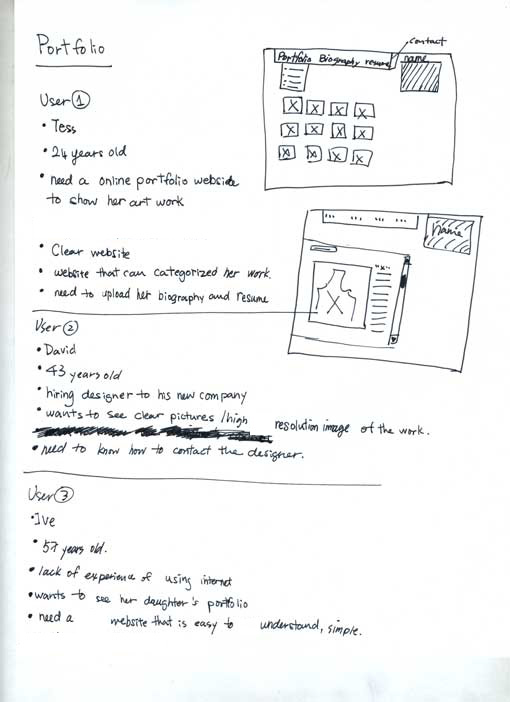 Portfolio
User ①
• Tess
• 24 years old
• need a online portfolio webside
to show her art work
• Clear website
• website that can categorized her work.
• need to upload her biography and resume
contact
Portfolio Biography resume
name
name
"x"
User ②
• David
• 43 years old
• hiring designer to his new company
• wants to see clear pictures /high resolution image of the work.
• need to know how to contact the designer.
User ③
• Ive
• 57 years old.
• lack of experience of using internet
• wants to see her daughter's portfolio
• need a website that is easy to understand, simple.